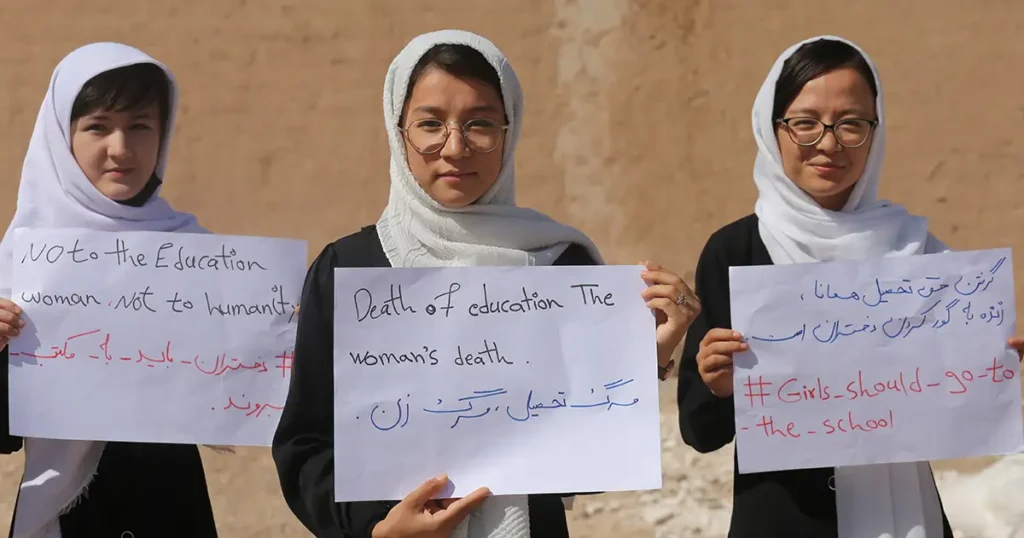 NOT to the Education
woman. Not to humanity
# دختران - باید - به - مکتب -
بروند.
Death of education The
woman's death.
مرگ تحصیل، مرگ زن.
گرفتن حق تحصیل همانا،
زنده به گور کردن دختران است.
# Girls-should-go-to
-the-school